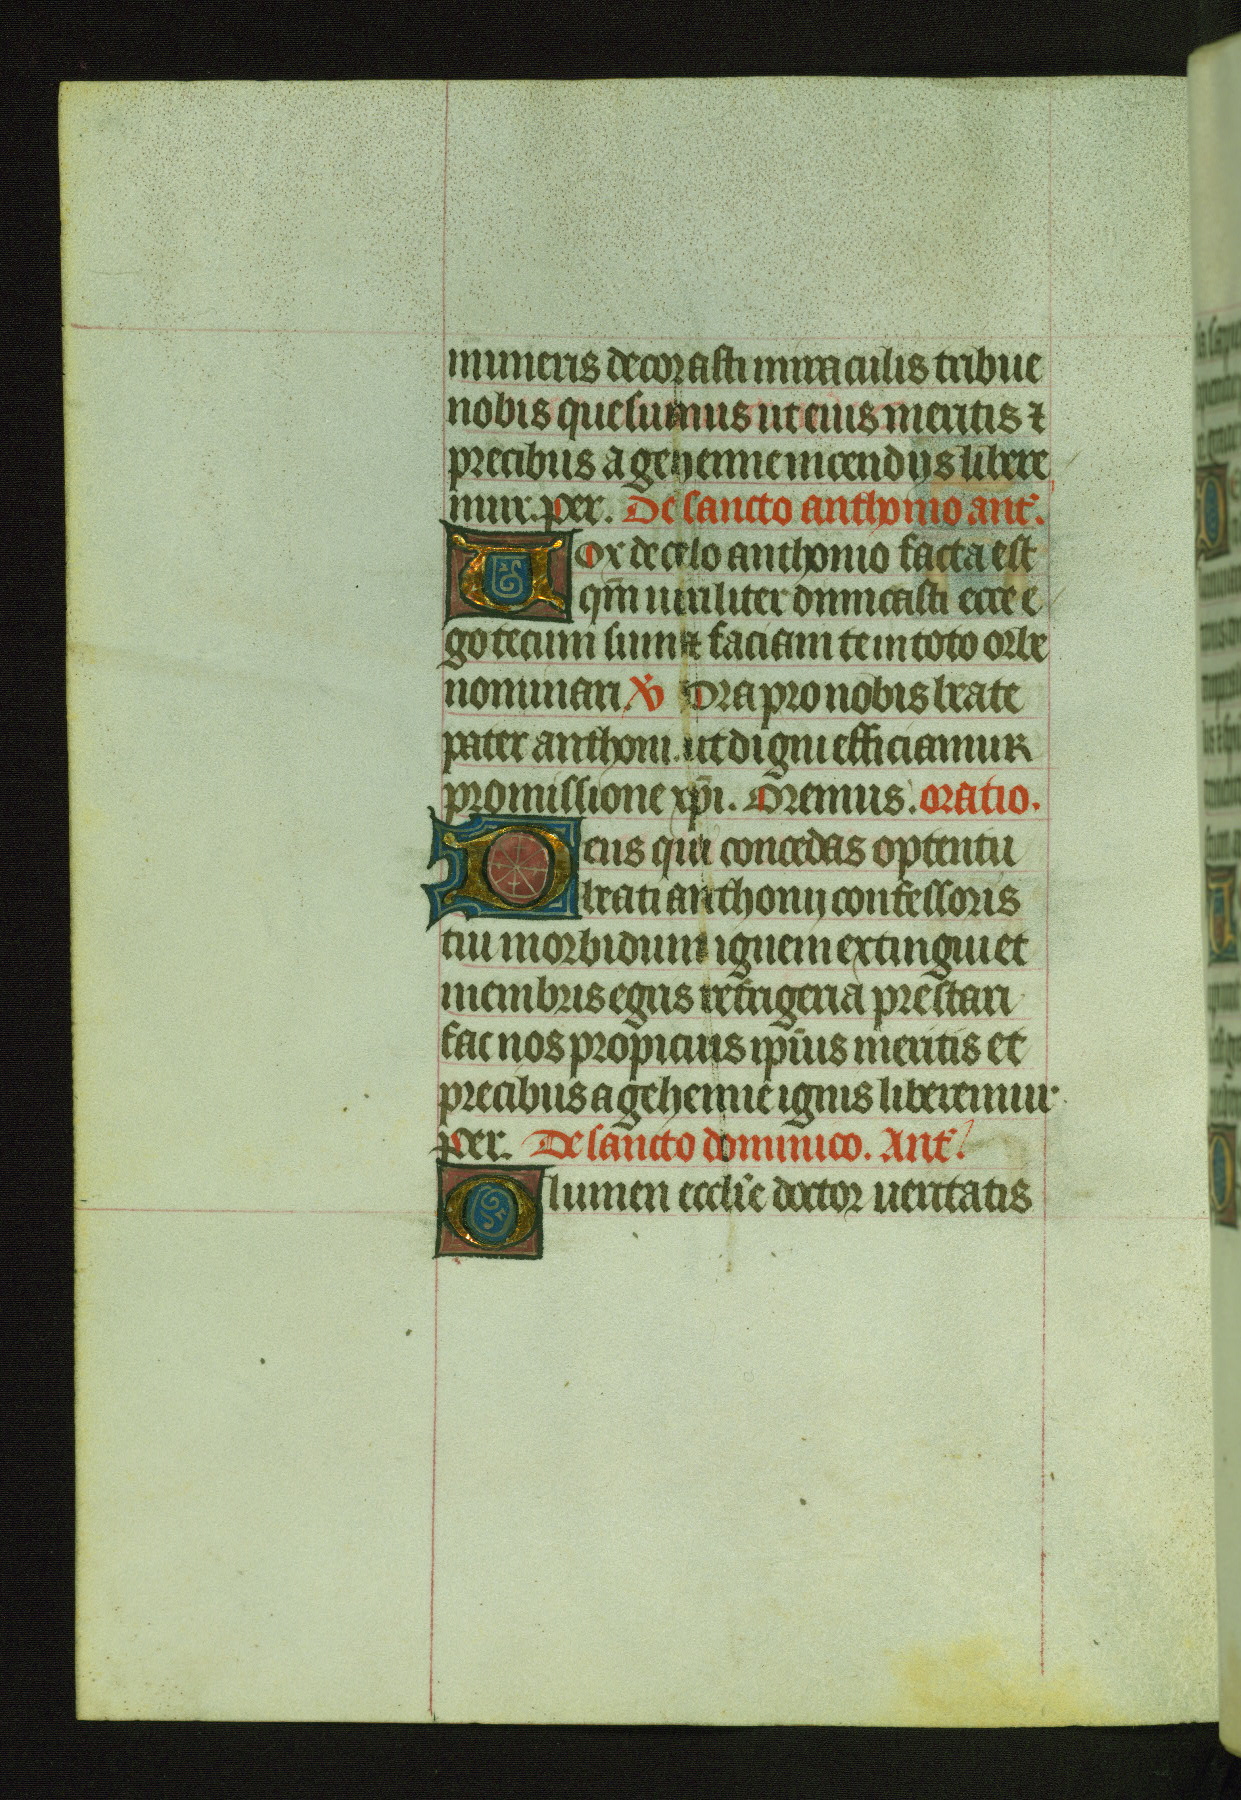 muneris decorasti miraculis tribue
nobis quesumus ut eius meritis ⁊
precibus a gehenne incendijs libere
mur. per. De sancto anthonio. ant̃.
Vox de celo anthonio facta est
qm̄ uiriliter dimicasti ecce e
go tecum sum ⁊ faciam te in toto orbe
nominari. ℣ Ora pro nobis beate
pater anthoni. ut digni efficiamur
promissione xp̄i. Oremus. oratio.
Deus qui concedas optentu
beati anthonij confessoris
tui morbidum ignem extingui et
membris egris refrigeria prestari
fac nos propicius ipīus meritis et
precibus a gehenne ignis liberemur
per. De sancto dominico. Ant̃.
O lumen eccl̃ie doctor ueritatis